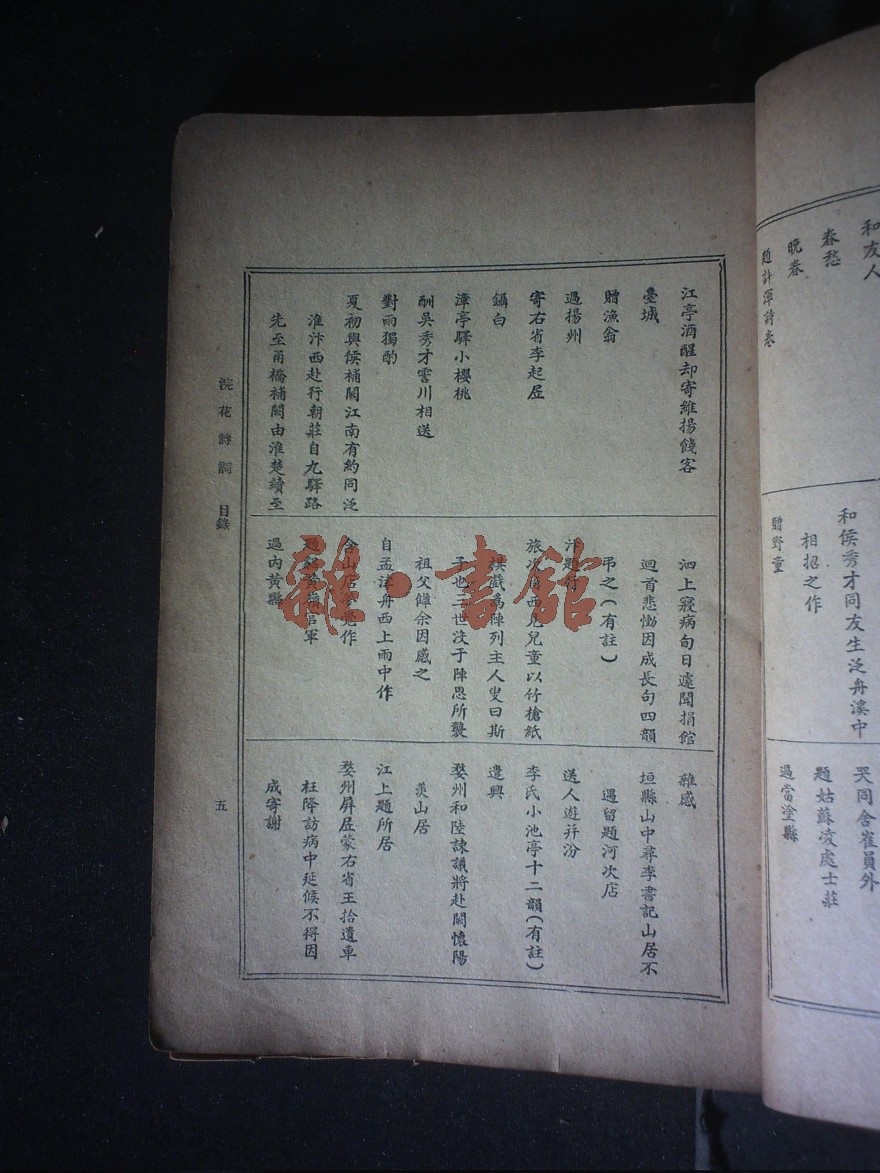 和友人
春愁
晚春
題許渾詩卷
和侯秀才同友生泛舟溪中
相招之作
贈野童
哭同舍崔員外
題姑蘇凌處士莊
過當塗縣
江亭酒醒却寄維揚餞客
臺城
贈漁翁
過揚州
寄右省李起居
鑷白
漳亭驛小櫻桃
酬吳秀才霅川相送
對雨獨酌
夏初與侯補闕江南有約同泛
淮汴西赴行朝莊自九驛路
先至甬橋補闕由淮楚續至
泗上寢病旬日遽聞捐館
迴首悲慟因成長句四韻
弔之(有註)
汴
旅次 西見兒童以竹槍紙
旗戲為陣列主人叟曰斯
子也三世沒于陣思所襲
祖父讎余因感之
自孟津舟西上雨中作
含山店夢覺作
題 官軍
過內黃縣
雜感
垣縣山中尋李書記山居不
遇留題河次店
送人遊幷汾
李氏小池亭十二韻(有註)
遣興
婺州和陸諫議將赴闕懷陽
羨山居
江上題所居
婺州屏居蒙右省王拾遺車
枉降訪病中延候不得因
成寄謝
浣花詩詞 目錄
五
雜·書館